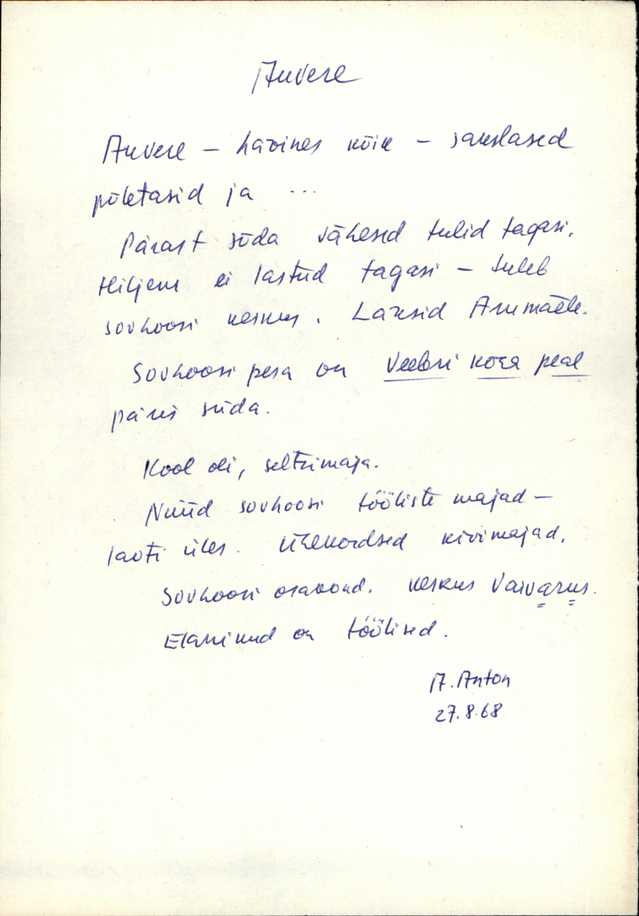 Auvere
Auvere – hävines kõik – sakslased
põletasid ja ...
Pärast sõda vähesed tulid tagasi.
Hiljem ei lastud tagasi – tuleb
sovhoosi keskus. Läksid Arumäele.
Sovhoosi pesa on Veebri koga peal
päris süda.
Kool oli, seltsimaja.
Nüüd sovhoosi tööliste majad –
laoti üles. Ühekordsed kivimajad.
Sovhoosi osakond. Keskus Vaivarus.
Elanikud on töölised.
A. Anton
27.8.68